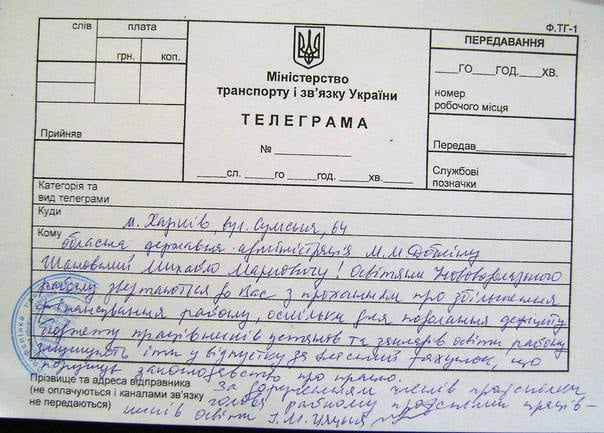 Ф.ТГ-1
слів
плата
грн.
коп.
Прийняв
Міністерство
транспорту і зв'язку України
ТЕЛЕГРАМА
№
сл. го год. хв.
ПЕРЕДАВАННЯ
ГО ГОД. ХВ.
номер
робочого місця
Передав
Службові
позначки
Категорія та
вид телеграми
Куди
м. Харків вул. Сумська, 64
Кому обласна державна адміністрація М.М Добкіну
Шановний Михайло Маркович! Освітяни Нововодолазького
району звертаються до Вас з проханням про збільшення
фінансування району, оскільки для подолання дефіциту
бюджету працівників установ та закладів освіти району
змушують іти у відпустку за власний рахунок, що
порушує законодавство про працю.
Прізвище та адреса відправника
(не оплачуються і каналами зв'язку
не передаються)
За дорученням членів профспілки
голова райкому профспілки праців-
ників освіти І.М.